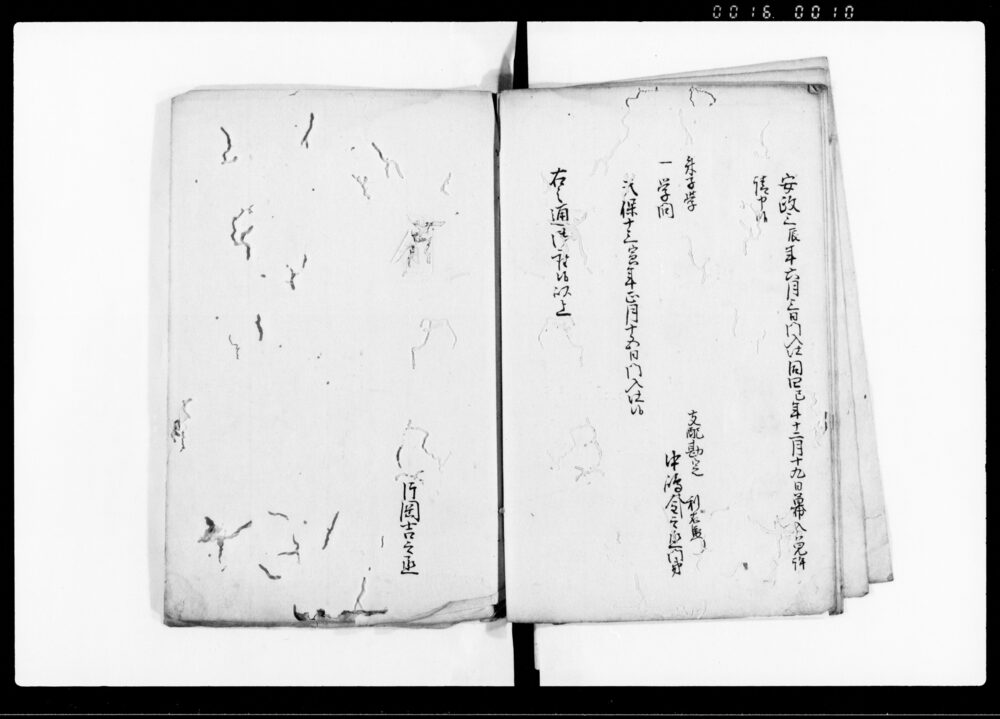 0016 0010
安政三辰年六月三日門入仕同四巳年十二月十九日幕入免許
請申候
朱子学
一 学問
支配勘定 利右衛門
中嶋金之丞門弟
天保十三寅年正月十五日門入仕候
右之通御座候以上
片岡吉之丞